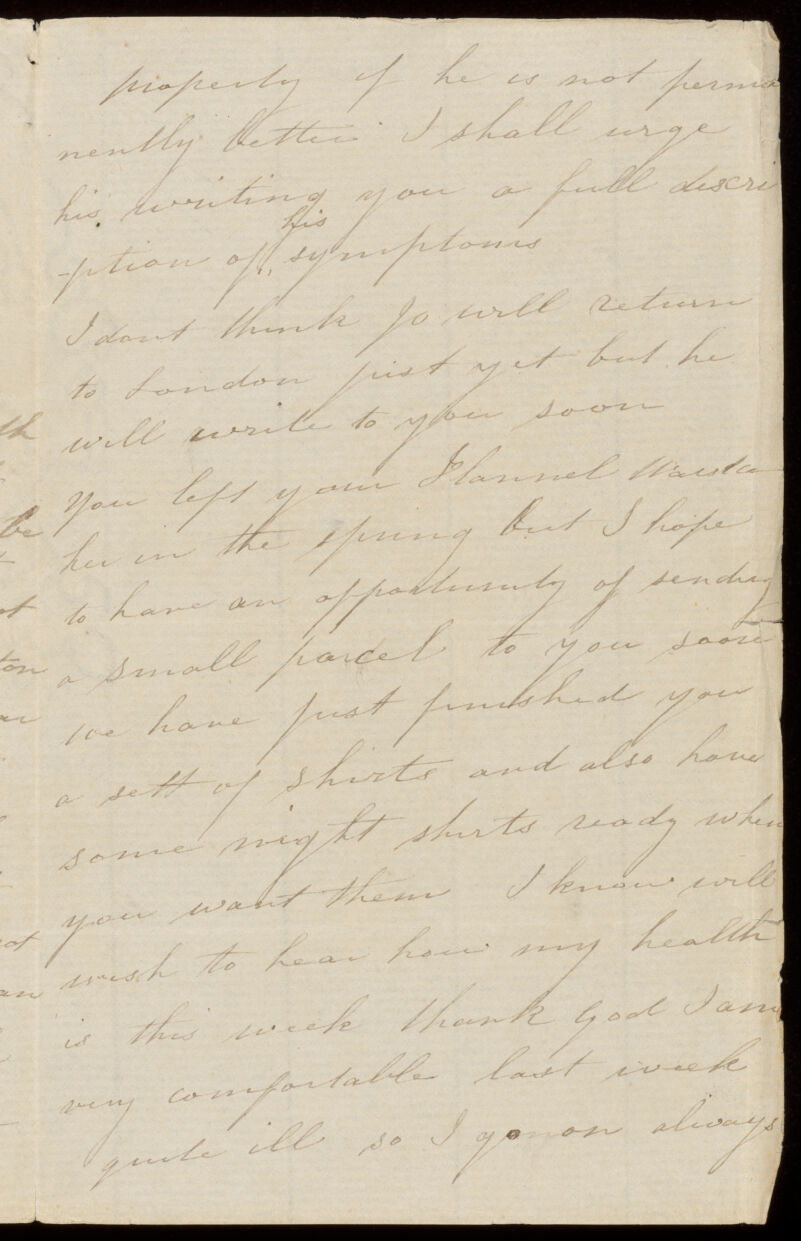 properly if he is not perma
nently better I shall urge
his writing you a full discri
-ption of his symptoms
I dont think Jo will return
to London just yet but he
will write to you soon
You left your Flannel Waistco
her in the spring but I hope
to have an opportunity of sending
a small parcel to you soon
we have just finished you
a sett of shirts and also have
some night shirts ready when
you want them I know will
wish to hear how my health
is this week thank God I am
very comfortable last week
quite ill so I go on always
th
be
ot
ton
ot
an